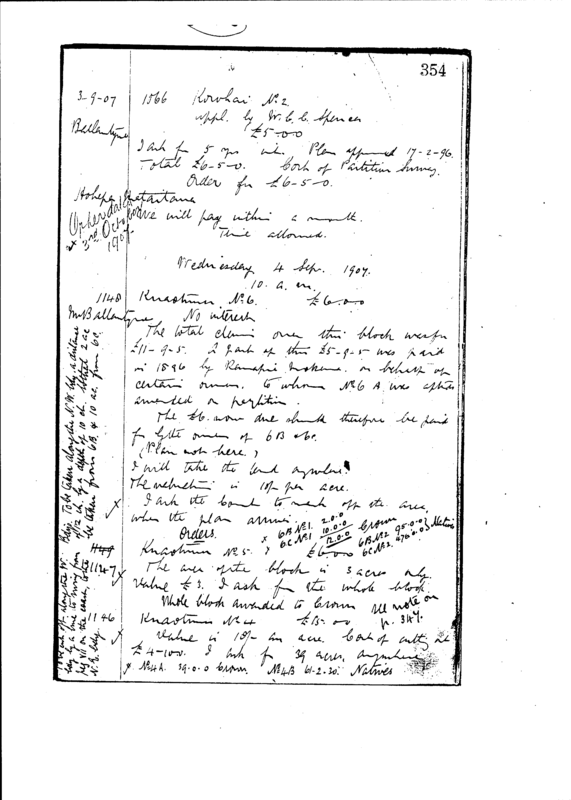 354
3-9-07 1566 Kowhai No 2
appl. by W. C. C. Spencer
£5-0-0
Ballantyne
I ask for 5 yrs int. Plan approved 17-2-96.
Total £6-5-0. Cost of Partition Survey.
Order for £6-5-0.
Hohepa Mataitaua
We will pay within a month.
Time allowed.
3rd October
1907
Wednesday 4 Sep. 1907.
10. a.m.
1148 Kuaotunu No 6. £6.0.0
Mr Ballantyne No interest
The total claim over this block was for
£11-9-5. A part of this £5-9-5 was paid
in 1896 by on behalf of
certain owners. to whom No 6 A was
awarded on partition.
The £6. now due should therefore be paid
for by the owners of 6B & 6C.
(Plan not here.)
I will take the land anywhere.
The valuation is 10/- per acre.
I ask the Court to mark off the area,
when the plan arrives.
Orders.
6B No 1. 2.0.0
6C No 1 10.0.0
12.0.0 Crown
6B No 2 95.0.0
6C No 2 470.0.0 Natives
1147 Kuaotunu No 5. £6.0.0
The area of the block is 3 acres only
Value £3. I ask for the whole block.
Whole block awarded to Crown
See note on
p. 347.
1146 Kuaotunu No 4 £15.0.0
Value is 10/- an acre. Cost of cutting
£4-10-0. I ask for 39 acres, anywhere
x No 4A. 39.0.0 Crown. No 4B 61.2.30. Natives
To be taken along the N.W. bdy. a distance
of 12 ch. by a depth of 10 ch. 2 ac
be taken from 6B & 10 ac. from 6C.
along the W.
bdy. by a line
N.E. bdy.